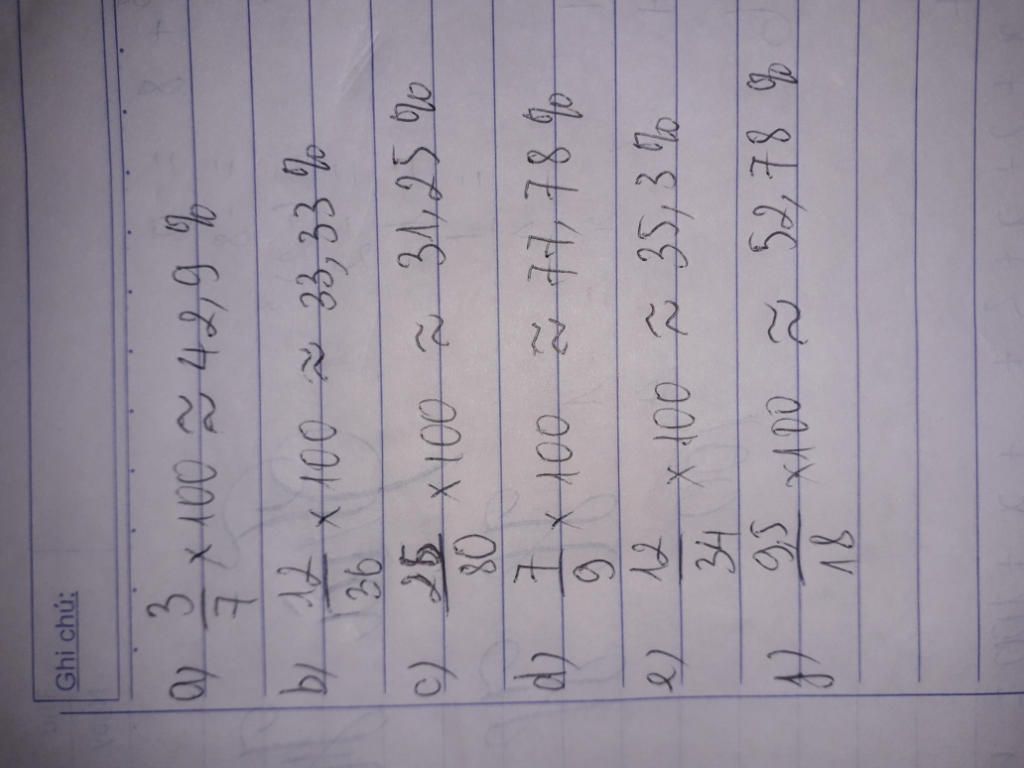 Ghi chú:
a) 3/7 x 100 ≈ 42,9 %
b) 12/36 x 100 ≈ 33,33 %
c) 25/80 x 100 ≈ 31,25 %
d) 7/9 x 100 ≈ 77,78 %
e) 12/34 x 100 ≈ 35,3 %
f) 9,5/18 x 100 ≈ 52,78 %